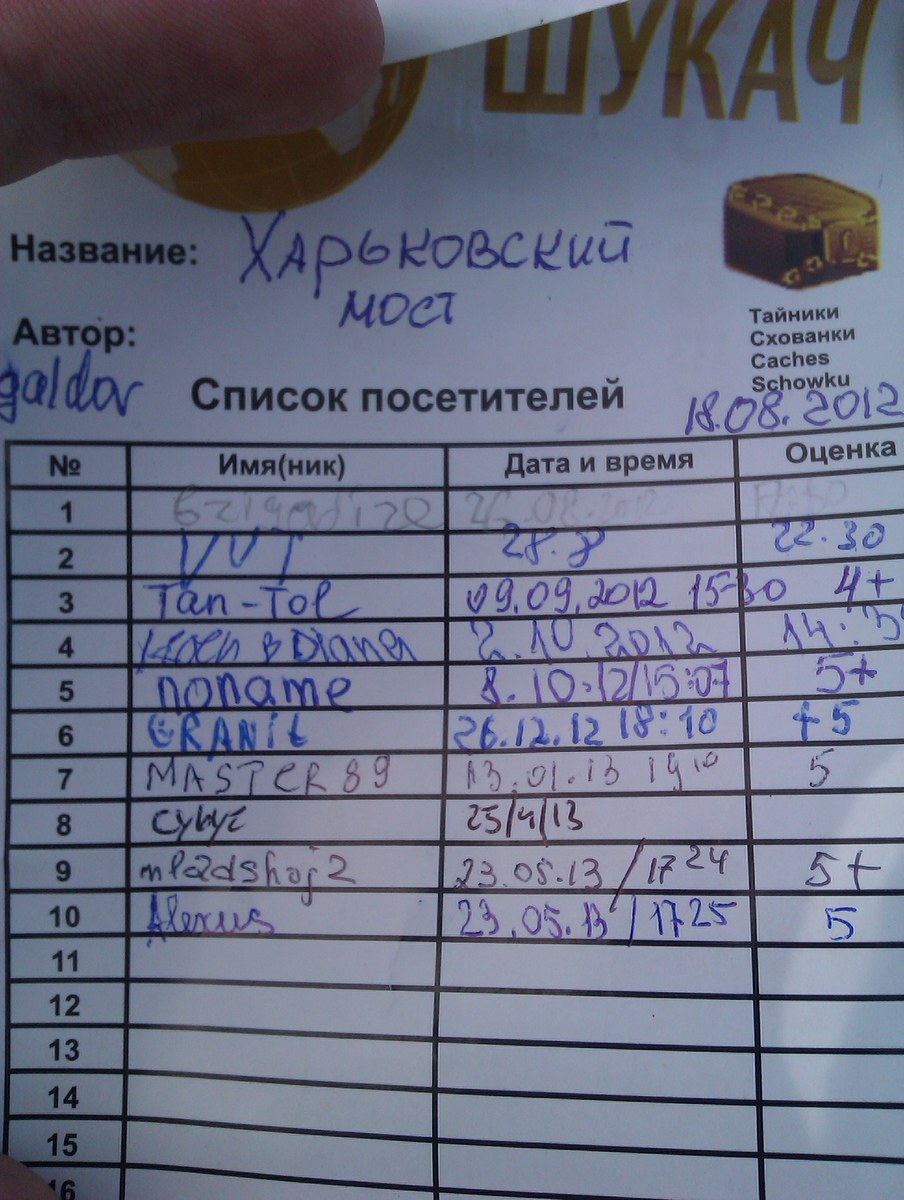 ШУКАЧ
Название: Харьковский
мост
Автор:
galdor
Тайники
Схованки
Caches
Schowku
Список посетителей
18.08.2012
№ Имя(ник) Дата и время Оценка
1 26.08.2012
2 VVT 28.8 22.30
3 Tan-Tol 09.09.2012 15-30 4+
4 2.10.2012
5 noname 8.10.12/15:07 5+
6 GRANit 26.12.12 18:10 +5
7 MASTER89 13.01.13 19 10 5
8 25/4/13
9 mladshoj2 23.05.13 / 17 24 5+
10 Alexus 23.05.13 / 17 25 5
11
12
13
14
15
16